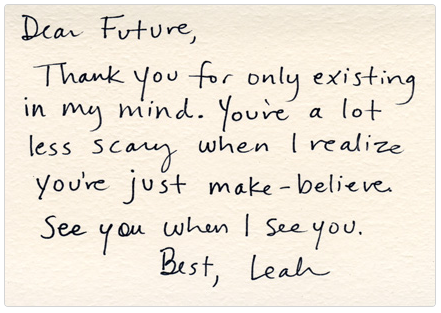 Dear Future,
Thank you for only existing
in my mind. You're a lot
less scary when I realize
you're just make-believe.
See you when I see you.
Best, Leah